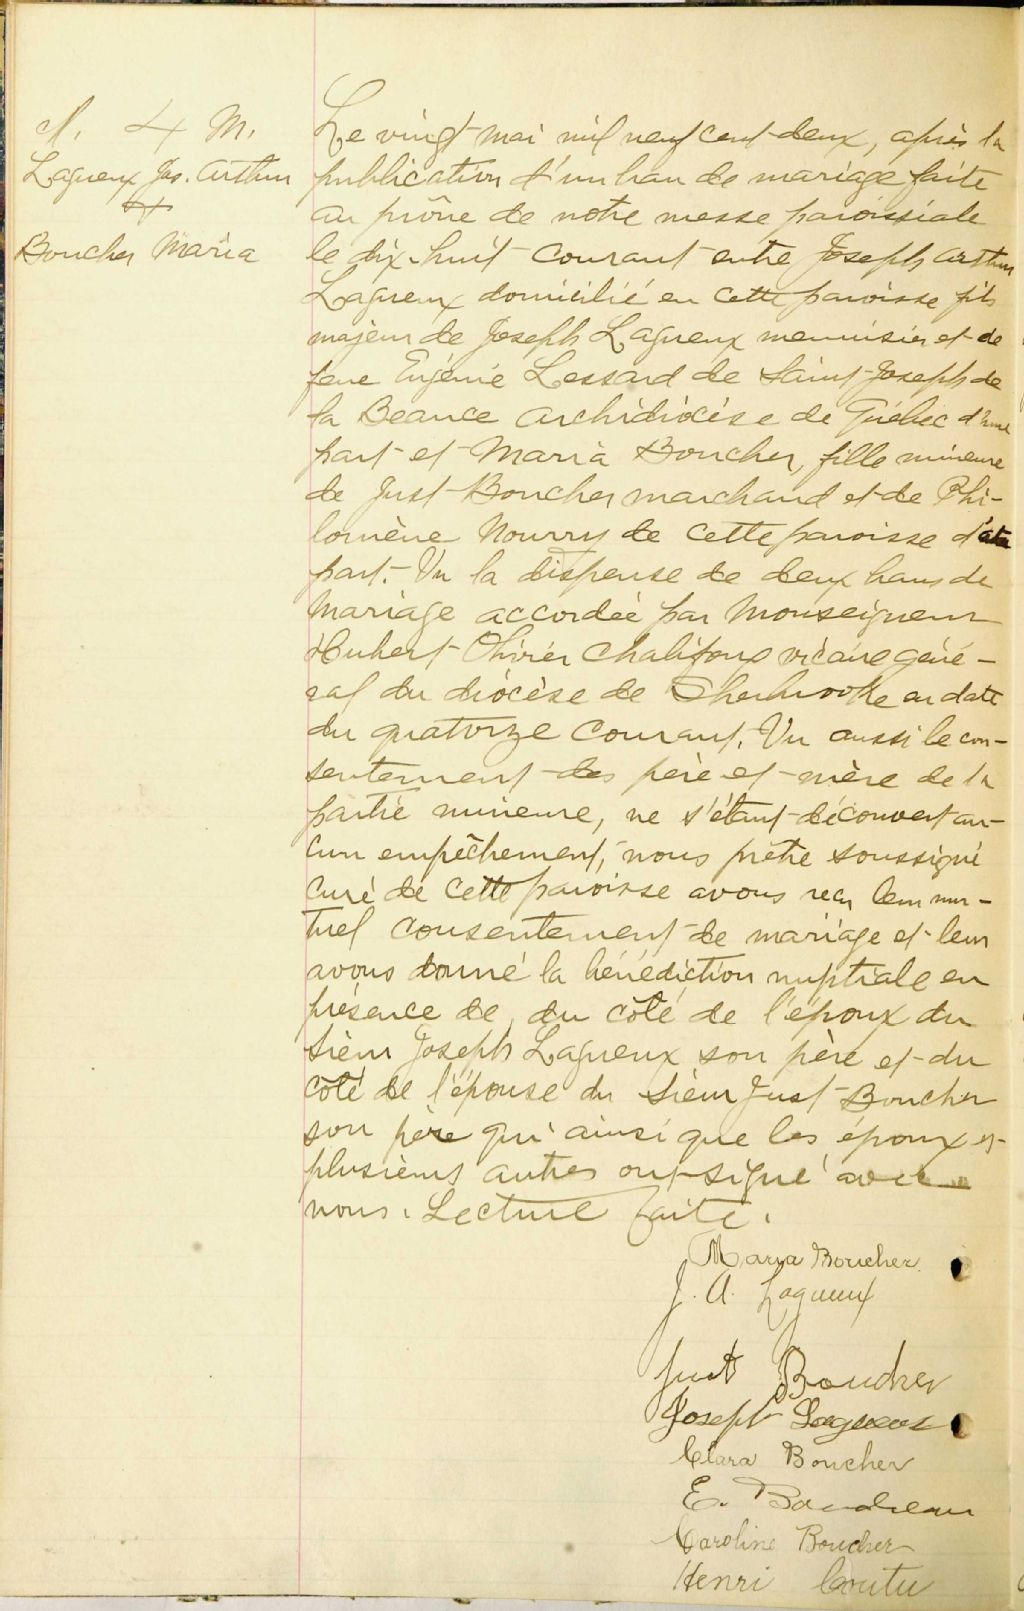 M. 4 M.
Lagueux Jos. Arthur
&
Boucher Maria
Le vingt mai mil neuf cent deux, après la
publication d'un ban de mariage faite
au prône de notre messe paroissiale
le dix-huit courant entre Joseph Arthur
Lagueux domicilié en cette paroisse fils
majeur de Joseph Lagueux menuisier et de
feue Eugénie Lessard de Saint-Joseph de
la Beauce archidiocèse de Québec d'une
part et Maria Boucher, fille mineure
de Just Boucher marchand et de Phi-
lomène Nourry de cette paroisse d'autre
part. Vu la dispense de deux bans de
mariage accordée par Monseigneur
Hubert Olivier Chalifoux vicaire géné-
ral du diocèse de Sherbrooke en date
du quatorze courant. Vu aussi le con-
sentement des père et mère de la
partie mineure, ne s'étant découvert au-
cun empêchement, nous prêtre soussigné
curé de cette paroisse avons reçu leur mu-
tuel consentement de mariage et leur
avons donné la bénédiction nuptiale en
présence de, du côté de l'époux du
sieur Joseph Lagueux son père et du
côté de l'épouse du sieur Just Boucher
son père qui ainsi que les époux et
plusieurs autres ont signé avec
nous. Lecture faite.
Maria Boucher
J. A. Lagueux
Just Boucher
Joseph Lagueux
Clara Boucher
E. Boudreau
Caroline Boucher
Henri Coutu